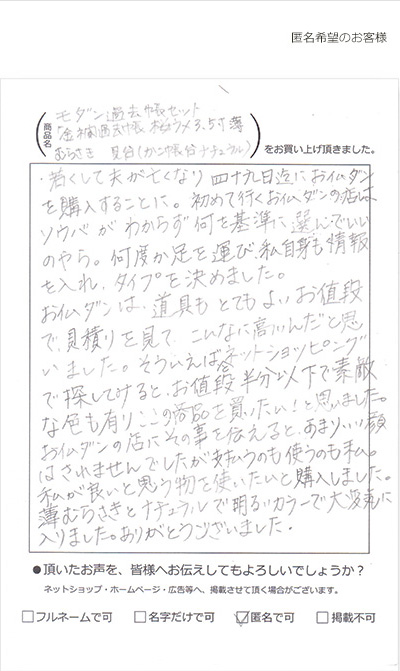 匿名希望のお客様
商品名
モダン過去帳セット
「金襴過去帳 桜うめ3.5寸 薄
むらさき 見台(かご帳台ナチュラル)
をお買い上げ頂きました。
・若くして夫が亡くなり 四十九日迄に おイムダン
を購入することに。初めて行くおイムダンの店は
ソウバが わからず 何を基準に 選んでいい
のやら。何度か足を運び、私自身も情報
を入れ、タイプを決めました。
おイムダンは、道具も とてもよいお値段
で、見積りを見て、こんなに高いんだと思
いました。そういえばネットショッピング
で探してみると、お値段半分以下で素敵
な色も有り、この商品を買ったい!と思いました。
おイムダンの店にその事を伝えると、あまりいい顔
はされませんでしたが 払うのも使うのも私。
私が良いと思う物を使いたいと購入しました。
薄むらさきとナチュラルで明るいカラーで大変気に
入りました。ありがとうございました。
●頂いたお声を、皆様へお伝えしてもよろしいでしょうか?
ネットショップ・ホームページ・広告等へ、掲載させて頂く場合がございます。
□フルネームで可 □名字だけで可 ☑匿名で可 □掲載不可